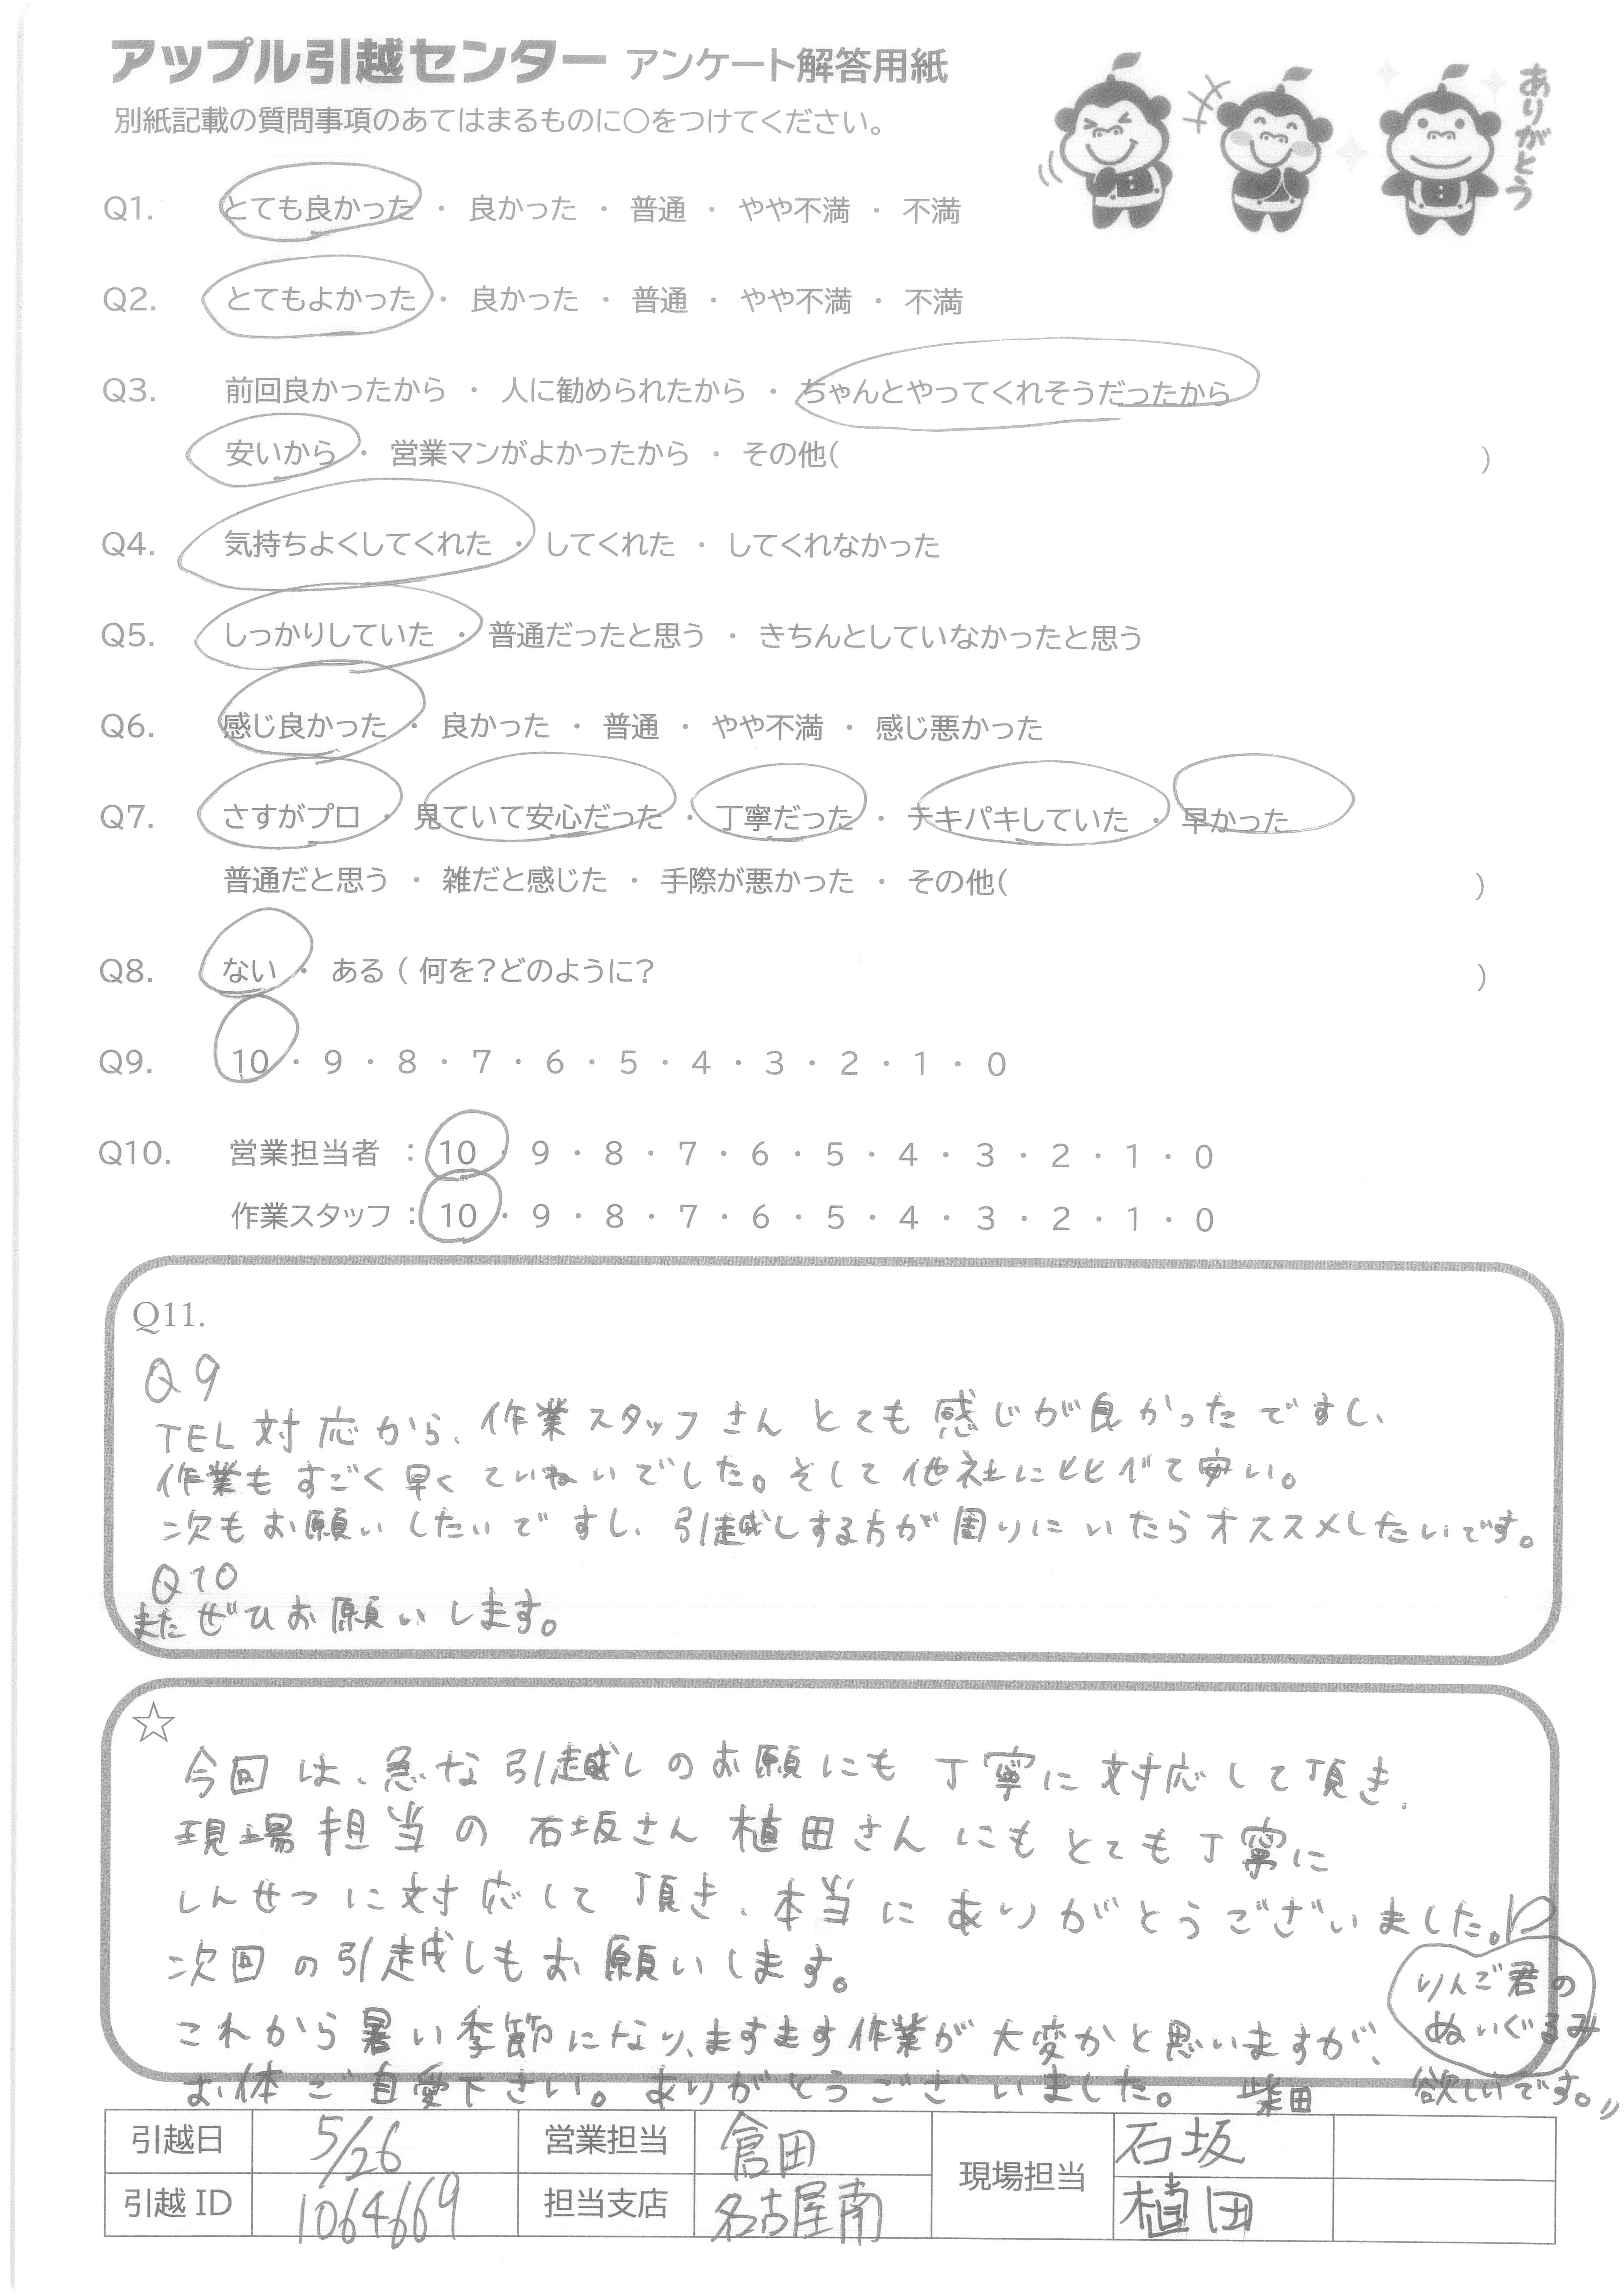 アップル引越センター アンケート解答用紙
別紙記載の質問事項のあてはまるものに○をつけてください。
ありがとう
Q1. とても良かった ・ 良かった ・ 普通 ・ やや不満 ・ 不満
Q2. とてもよかった ・ 良かった ・ 普通 ・ やや不満 ・ 不満
Q3. 前回良かったから ・ 人に勧められたから ・ ちゃんとやってくれそうだったから
安いから ・ 営業マンがよかったから ・ その他( )
Q4. 気持ちよくしてくれた ・ してくれた ・ してくれなかった
Q5. しっかりしていた ・ 普通だったと思う ・ きちんとしていなかったと思う
Q6. 感じ良かった ・ 良かった ・ 普通 ・ やや不満 ・ 感じ悪かった
Q7. さすがプロ ・ 見ていて安心だった ・ 丁寧だった ・ テキパキしていた ・ 早かった
普通だと思う ・ 雑だと感じた ・ 手際が悪かった ・ その他( )
Q8. ない ・ ある ( 何を?どのように? )
Q9. 10 ・ 9 ・ 8 ・ 7 ・ 6 ・ 5 ・ 4 ・ 3 ・ 2 ・ 1 ・ 0
Q10. 営業担当者 : 10 ・ 9 ・ 8 ・ 7 ・ 6 ・ 5 ・ 4 ・ 3 ・ 2 ・ 1 ・ 0
作業スタッフ : 10 ・ 9 ・ 8 ・ 7 ・ 6 ・ 5 ・ 4 ・ 3 ・ 2 ・ 1 ・ 0
Q11.
Q9
TEL対応から、作業スタッフさんとても感じが良かったですし、
作業もすごく早くていねいでした。そして他社に比べて安い。
次もお願いしたいですし、引越しする方が周りにいたらオススメしたいです。
Q10
またぜひお願いします。
☆
今回は、急な引越しのお願にも丁寧に対応して頂き、
現場担当の石坂さん植田さんにもとても丁寧に
しんせつに対応して頂き、本当にありがとうございました。
次回の引越しもお願いします。
これから暑い季節になり、ますます作業が大変かと思いますが、
お体ご自愛下さい。ありがとうございました。 柴田
りんご君の
ぬいぐるみ
欲しいです。
引越日 5/26 営業担当 倉田 現場担当 石坂
引越ID 1064669 担当支店 名古屋南 植田